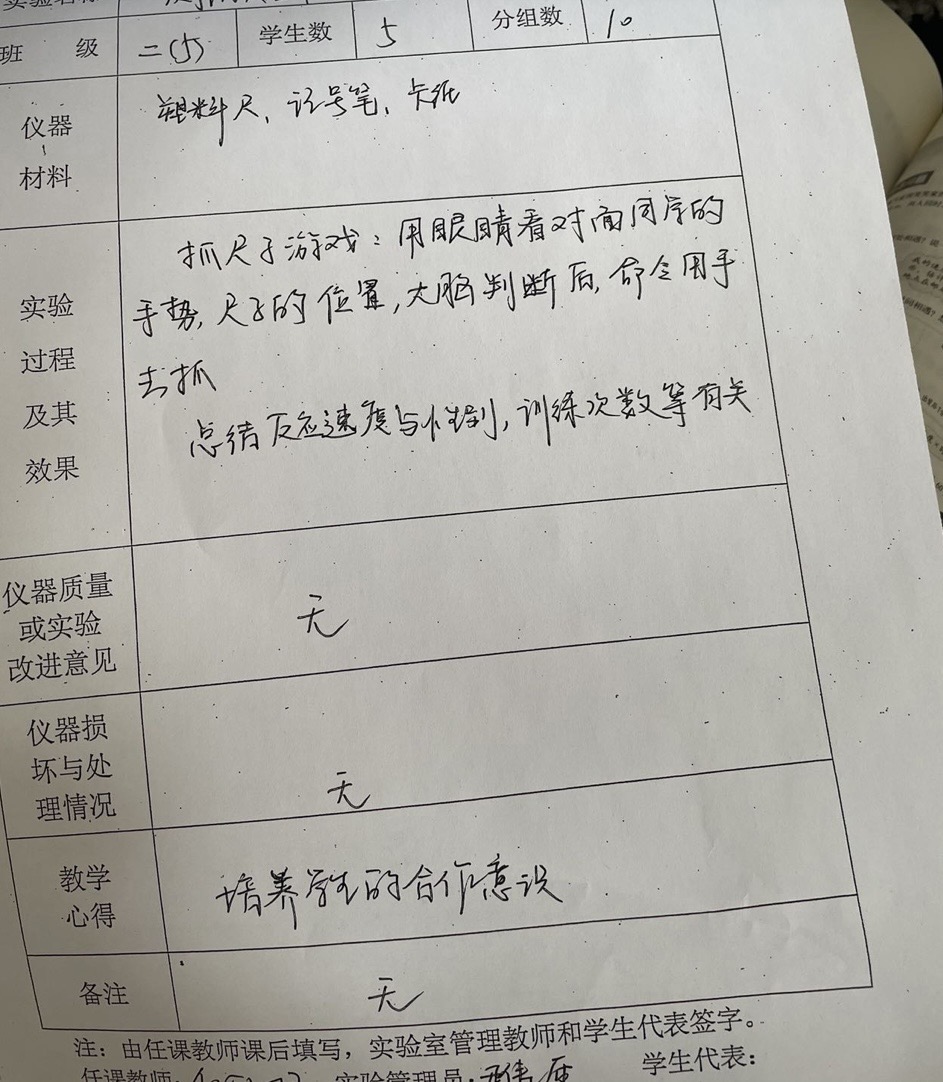 实验名称
班 级 二(5) 学生数 5 分组数 10
仪器
、
材料
塑料尺、记号笔、卡纸
实验
过程
及其
效果
抓尺子游戏：用眼睛看对面同学的
手势，尺子的位置，大脑判断后，命令用手
去抓
总结反应速度与性别，训练次数等有关
仪器质量
或实验
改进意见
无
仪器损
坏与处
理情况
无
教学
心得
培养学生的合作意识
备注
无
注：由任课教师课后填写，实验室管理教师和学生代表签字。
任课教师： 实验管理员： 学生代表：